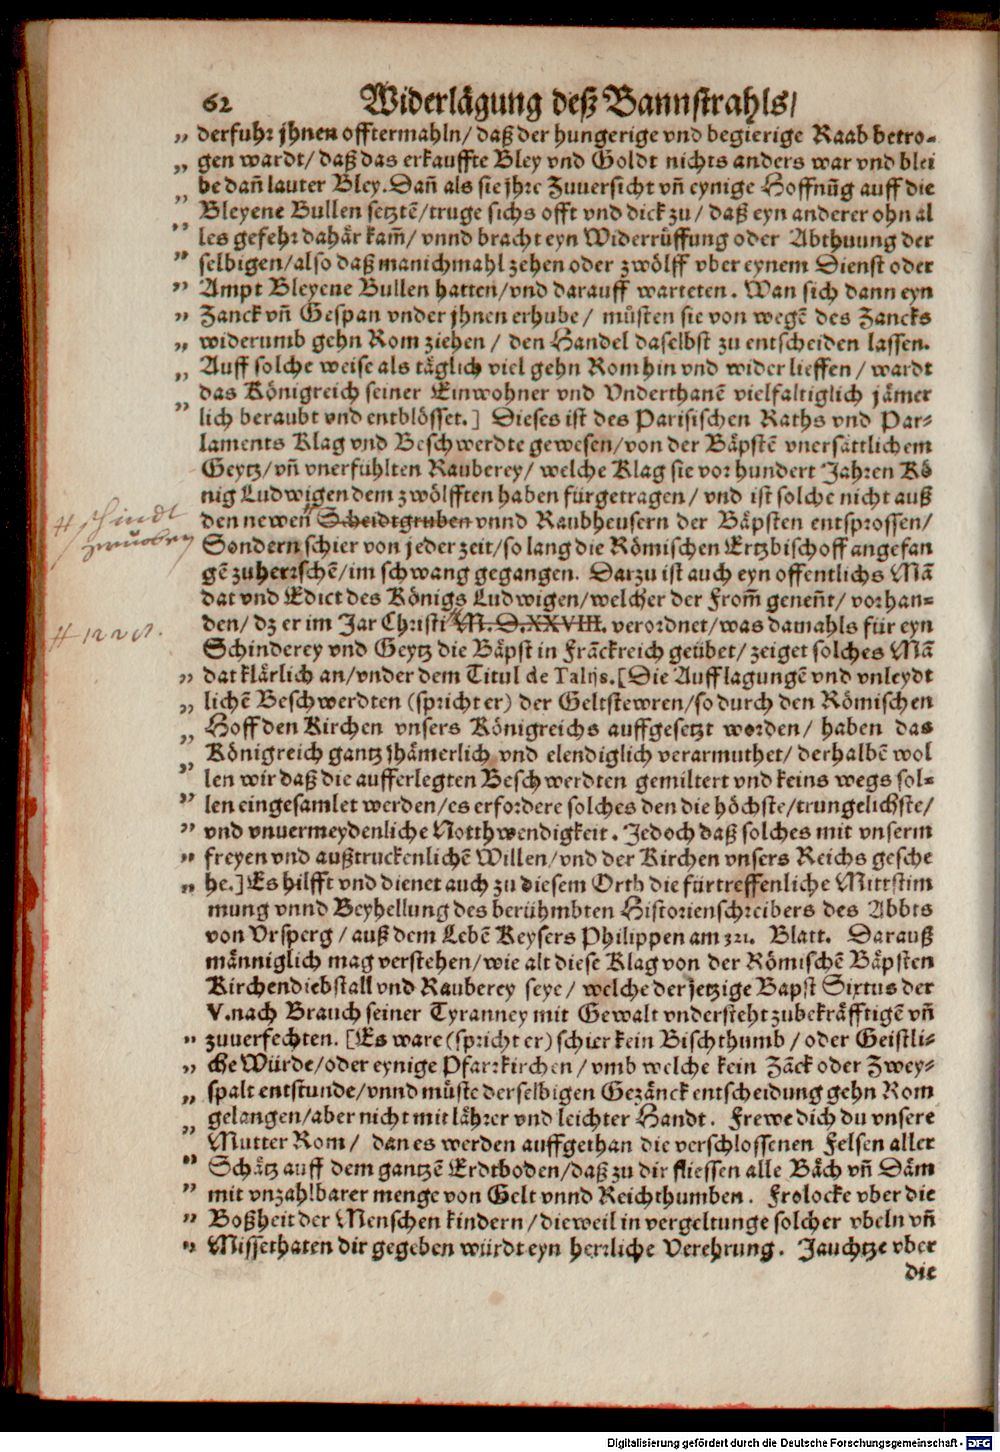 62 Widerlägung deß Bannstrahls/
„ derfuhr jhnen offtermahln/ daß der hungerige vnd begierige Raab betro-
„ gen wardt/ daß das erkauffte Bley vnd Goldt nichts anders war vnd blei
„ be dañ lauter Bley. Dañ als sie jhre Zuuersicht vñ eynige Hoffnũg auff die
„ Bleyene Bullen setztẽ/ truge sichs offt vnd dick zu/ daß eyn anderer ohn al
„ les gefehr dahär kam̃/ vnnd bracht eyn Widerrüffung oder Abthuung der
„ selbigen/ also daß manichmahl zehen oder zwölff vber eynem Dienst oder
„ Ampt Bleyene Bullen hatten/ vnd darauff warteten. Wan sich dann eyn
„ Zanck vñ Gespan vnder jhnen erhube/ müsten sie von wegẽ des Zancks
„ widerumb gehn Rom ziehen/ den Handel daselbst zu entscheiden lassen.
„ Auff solche weise als täglich viel gehn Rom hin vnd wider lieffen/ wardt
„ das Königreich seiner Einwohner vnd Vnderthanẽ vielfaltiglich jämer
lich beraubt vnd entblösset.] Dieses ist des Parisischen Raths vnd Par-
laments Klag vnd Beschwerdte gewesen/ von der Bäpstẽ vnersättlichem
Geytz/ vñ vnerfühlten Rauberey/ welche Klag sie vor hundert Jahren Kö
nig Ludwigen dem zwölfften haben fürgetragen/ vnd ist solche nicht auß
# schindt
den newen # Scheidtgruben vnnd Raubheusern der Bäpsten entsprossen/
Sondern schier von jeder zeit/ so lang die Römischen Ertzbischoff angefan
gẽ zuherrschẽ/ im schwang gegangen. Darzu ist auch eyn offentlichs Mã
dat vnd Edict des Königs Ludwigen/ welcher der From̃ geneñt/ vorhan-
den/ dz er im Jar Christi # M. D. XXVIII. verordnet/ was damahls für eyn
Schinderey vnd Geytz die Bäpst in Frãckreich geübet/ zeiget solches Mã
„ dat klärlich an/ vnder dem Titul de Talijs. [Die Aufflagungẽ vnd vnleydt
„ lichẽ Beschwerdten (spricht er) der Geltstewren/ so durch den Römischen
„ Hoff den Kirchen vnsers Königreichs auffgesetzt worden/ haben das
„ Königreich gantz jhämerlich vnd elendiglich verarmuthet/ derhalbẽ wol
„ len wir daß die aufferlegten Beschwerdten gemiltert vnd keins wegs sol-
„ len eingesamlet werden/ es erfordere solches den die höchste/ trungelichste/
„ vnd vnuermeydenliche Notthwendigkeit. Jedoch daß solches mit vnserm
„ freyen vnd außtruckenlichẽ Willen/ vnd der Kirchen vnsers Reichs gesche
„ he.] Es hilfft vnd dienet auch zu diesem Orth die fürtreffenliche Mittstim
mung vnnd Beyhellung des berühmbten Historienschreibers des Abbts
von Vrsperg/ auß dem Lebẽ Keysers Philippen am 321. Blatt. Darauß
männiglich mag verstehen/ wie alt diese Klag von der Römischẽ Bäpsten
Kirchendiebstall vnd Rauberey seye/ welche der jetzige Bapst Sixtus der
V. nach Brauch seiner Tyranney mit Gewalt vndersteht zubekräfftigẽ vñ
„ zuuerfechten. [Es ware (spricht er) schier kein Bischthumb/ oder Geistli-
„ che Würde/ oder eynige Pfarrkirchen/ vmb welche kein Zãck oder Zwey-
„ spalt entstunde/ vnnd müste derselbigen Gezänck entscheidung gehn Rom
„ gelangen/ aber nicht mit lährer vnd leichter Handt. Frewe dich du vnsere
„ Mutter Rom/ dan es werden auffgethan die verschlossenen Felsen aller
„ Schätz auff dem gantzẽ Erdtboden/ daß zu dir fliessen alle Bäch vñ Däm
„ mit vnzahlbarer menge von Gelt vnnd Reichthumben. Frolocke vber die
„ Boßheit der Menschen kindern/ dieweil in vergeltunge solcher vbeln vñ
„ Missethaten dir gegeben würdt eyn herrliche Verehrung. Jauchtze vber
die
Digitalisierung gefördert durch die Deutsche Forschungsgemeinschaft - DFG